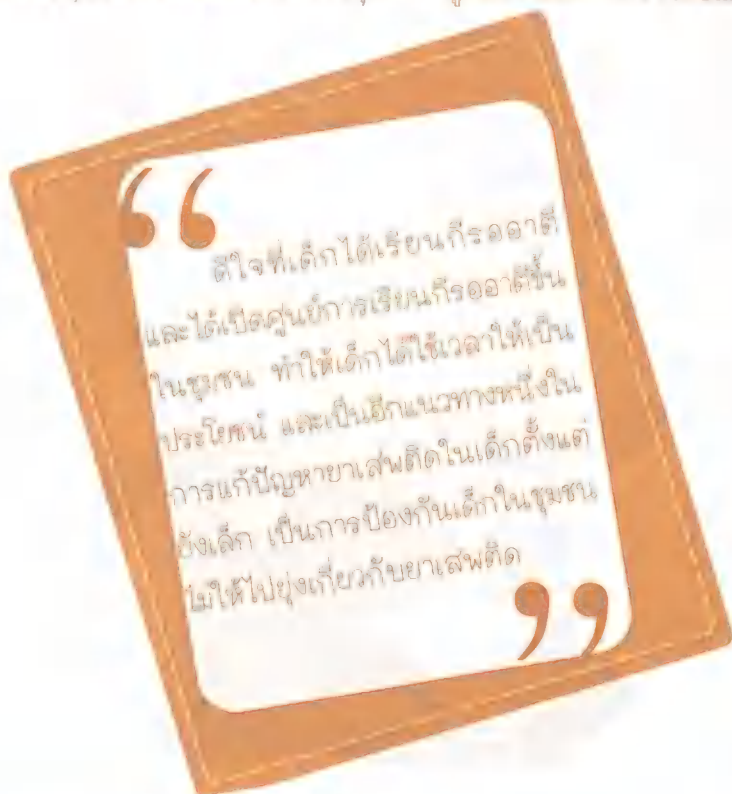 “
ดีใจที่เด็กได้เรียนกีรออาตี
และได้เปิดศูนย์การเรียนกีรออาตีขึ้น
ในชุมชน ทำให้เด็กได้ใช้เวลาให้เป็น
ประโยชน์ และเป็นอีกแนวทางหนึ่งใน
การแก้ปัญหายาเสพติดในเด็กตั้งแต่
ยังเล็ก เป็นการป้องกันเด็กในชุมชน
ไม่ให้ไปยุ่งเกี่ยวกับยาเสพติด
”